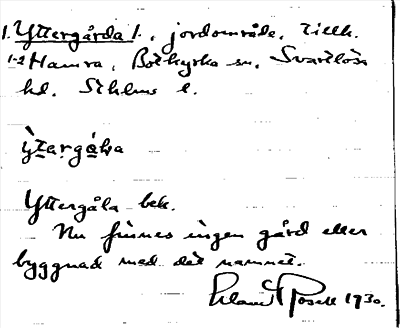 1. Yttergårda 1., jordområde, tillh.
1-2 Hamra, Botkyrka sn, Svartlösa
hd. Sthlms l.
Yttergåla bek.
Nu finnes ingen gård eller
byggnad med det namnet.
1930.